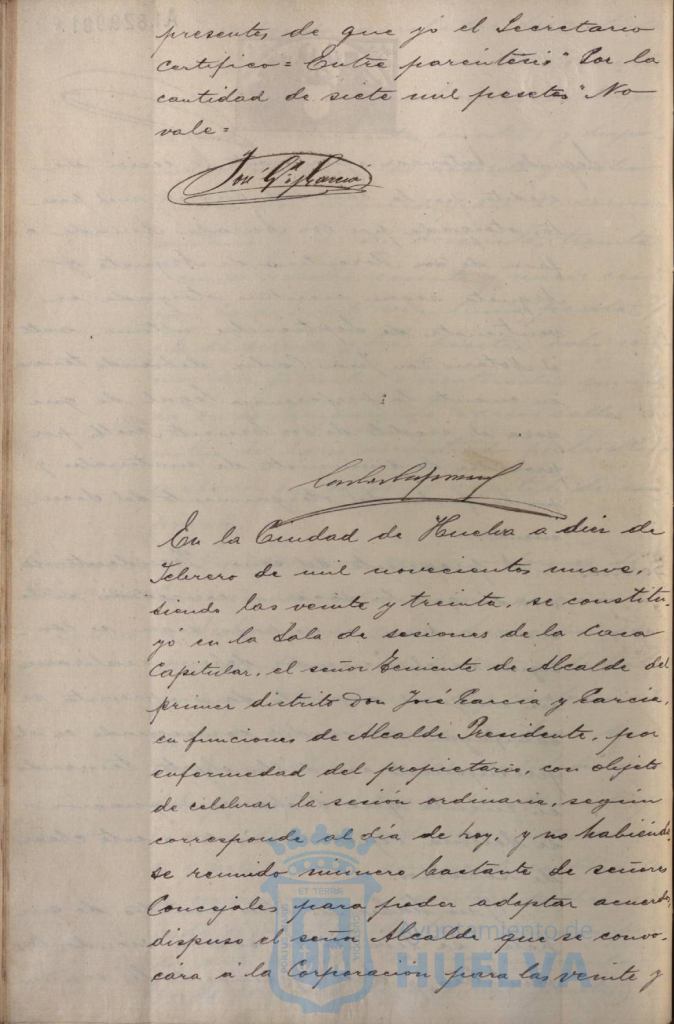 presentes, de que yó el Secretario
certifico = Entre paréntesis "Por la
cantidad de siete mil pesetas" No
vale =
José Gª. y García
En la Ciudad de Huelva a diez de
Febrero de mil novecientos nueve,
siendo las veinte y treinta, se constitu-
yó en la Sala de sesiones de la Casa
Capitular, el señor Teniente de Alcalde del
primer distrito Don José García y García,
en funciones de Alcalde Presidente, por
enfermedad del propietario, con objeto
de celebrar la sesión ordinaria, según
corresponde al día de hoy, y no habiendo
se reunido número bastante de señores
Concejales para poder adoptar acuerdos,
dispuso el señor Alcalde que se convo-
cára á la Corporación para las veinte y
Ayuntamiento de
HUELVA